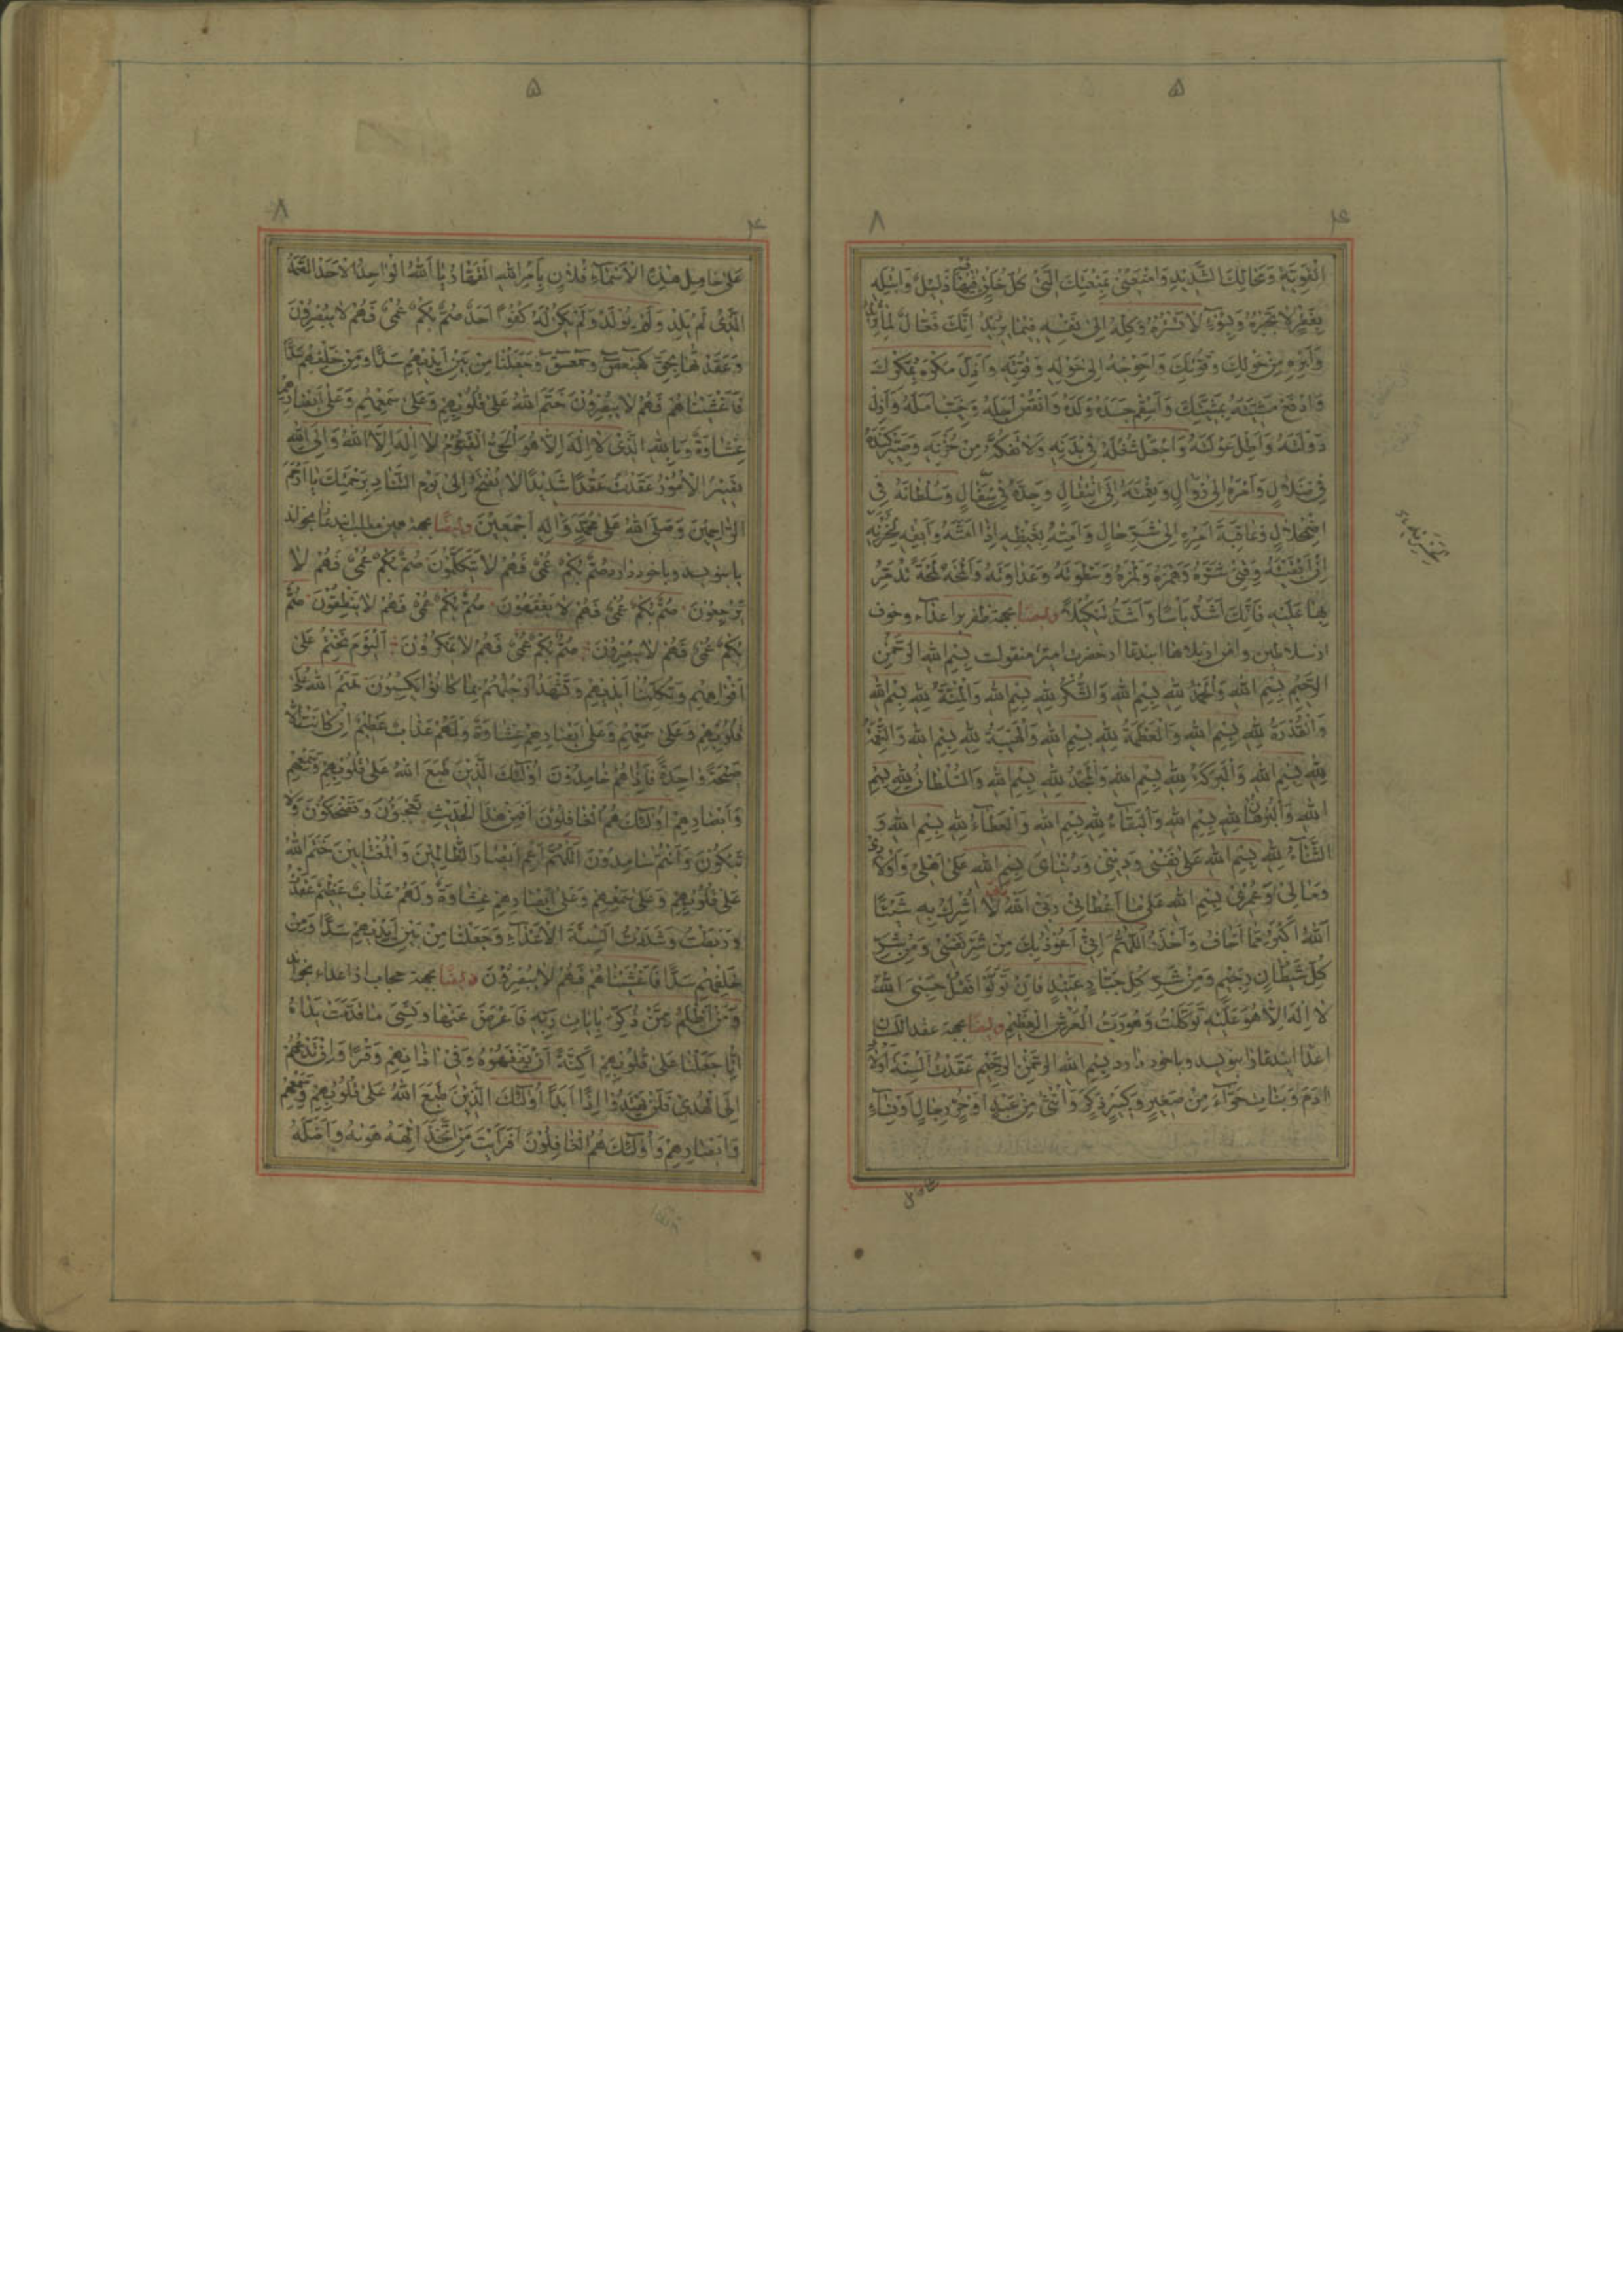 ۵
۸
۴
الْقَوِيَّةِ وَمِحَالِكَ الشَّدِيدِ وَامْنَعْنِي بِمَنْعَتِكَ الَّتِي كُلُّ خَلْقٍ فِيهَا ذَلِيلٌ وَابْتَلِهِ
بِفَقْرٍ لَا تَجْبُرُهُ وَبِسُوءٍ لَا تَسْتُرُهُ وَكِلْهُ اِلَى نَفْسِهِ فِيمَا يُرِيدُ اِنَّكَ فَعَّالٌ لِمَا تُرِيدُ
وَاَبْرِهِ مِنْ حَوْلِكَ وَقُوَّتِكَ وَاَحْوِجْهُ اِلَى حَوْلِهِ وَقُوَّتِهِ وَاَذِلَّ مَكْرَهُ بِمَكْرِكَ
وَادْفَعْ مَشِيَّتَهُ بِمَشِيَّتِكَ وَاَسْقِمْ جَسَدَهُ وَاَيْتِمْ وَلَدَهُ وَانْقُصْ اَجَلَهُ وَخَيِّبْ اَمَلَهُ وَاَزِلْ
دَوْلَتَهُ وَاَطِلْ عَوْلَتَهُ وَاجْعَلْ شُغْلَهُ فِي بَدَنِهِ وَلَا تَفُكَّهُ مِنْ حُزْنِهِ وَصَيِّرْ كَيْدَهُ
فِي ضَلَالٍ وَاَمْرَهُ اِلَى زَوَالٍ وَنِعْمَتَهُ اِلَى انْتِقَالٍ وَجَدَّهُ فِي سَفَالٍ وَسُلْطَانَهُ فِي
اضْمِحْلَالٍ وَعَاقِبَةَ اَمْرِهِ اِلَى شَرِّ حَالٍ وَاَمِتْهُ بِغَيْظِهِ اِذَا اَمَتَّهُ وَاَبْقِهِ بِحُزْنِهِ
اِنْ اَبْقَيْتَهُ وَقِنِي شَرَّهُ وَهَمْزَهُ وَلَمْزَهُ وَسَطْوَتَهُ وَعَدَاوَتَهُ وَالْمَحْهُ لَمْحَةً تُدَمِّرُ
بِهَا عَلَيْهِ فَاِنَّكَ اَشَدُّ بَاْسًا وَاَشَدُّ تَنْكِيلًا وايضا بجهة ظفر بر اعداء و خوف
از سلاطين و امن از بلاها اين دعا از حضرت امير منقولست بِسْمِ اللهِ الرَّحْمٰنِ
الرَّحِيمِ بِسْمِ اللهِ وَالْحَمْدُ لِلّٰهِ بِسْمِ اللهِ وَالشُّكْرُ لِلّٰهِ بِسْمِ اللهِ وَالْمِنَّةُ لِلّٰهِ بِسْمِ اللهِ
وَالْقُدْرَةُ لِلّٰهِ بِسْمِ اللهِ وَالْعَظَمَةُ لِلّٰهِ بِسْمِ اللهِ وَالْهَيْبَةُ لِلّٰهِ بِسْمِ اللهِ وَ
لِلّٰهِ بِسْمِ اللهِ وَالْبَرَكَةُ لِلّٰهِ بِسْمِ اللهِ وَالْمَجْدُ لِلّٰهِ بِسْمِ اللهِ وَالسُّلْطَانُ لِلّٰهِ بِسْمِ
اللهِ وَالْبُرْهَانُ لِلّٰهِ بِسْمِ اللهِ وَالْبَقَاءُ لِلّٰهِ بِسْمِ اللهِ وَالْعَطَاءُ لِلّٰهِ بِسْمِ اللهِ وَ
الثَّنَاءُ لِلّٰهِ بِسْمِ اللهِ عَلَى نَفْسِي وَدِينِي وَدُنْيَايَ بِسْمِ اللهِ عَلَى اَهْلِي وَاَوْلَادِي
وَمَالِي وَعُمْرِي بِسْمِ اللهِ عَلَى مَا اَعْطَانِي رَبِّي اَللهُ لَا اُشْرِكُ بِهِ شَيْئًا
اَللهُ اَكْبَرُ مِمَّا اَخَافُ وَاَحْذَرُ اَللّٰهُمَّ اِنِّي اَعُوذُ بِكَ مِنْ شَرِّ نَفْسِي وَمِنْ شَرِّ
كُلِّ شَيْطَانٍ رَجِيمٍ وَمِنْ شَرِّ كُلِّ جَبَّارٍ عَنِيدٍ فَاِنْ تَوَلَّوْا فَقُلْ حَسْبِيَ اللهُ
لَا اِلٰهَ اِلَّا هُوَ عَلَيْهِ تَوَكَّلْتُ وَهُوَ رَبُّ الْعَرْشِ الْعَظِيمِ وايضا بجهة عقد اللسان
اعدا اين دعا را بنويسد و باخود دارد بِسْمِ اللهِ الرَّحْمٰنِ الرَّحِيمِ عَقَدْتُ اَلْسِنَةَ اَوْلَادِ
اٰدَمَ وَبَنَاتِ حَوَّاءَ مِنْ صَغِيرٍ وَكَبِيرٍ ذَكَرٍ وَاُنْثَى مِنْ عَبْدٍ اَوْ حُرٍّ رِجَالٍ اَوْ نِسَاءٍ
۵
۸
۴
عَلَى حَامِلِ هٰذِهِ الْاَسْمَاءِ فُلَانٍ بِاَمْرِ اللهِ الْقَهَّارِ يَا اَللهُ الْوَاحِدُ الْاَحَدُ الصَّمَدُ
الَّذِي لَمْ يَلِدْ وَلَمْ يُولَدْ وَلَمْ يَكُنْ لَهُ كُفُوًا اَحَدٌ صُمٌّ بُكْمٌ عُمْيٌ فَهُمْ لَا يُبْصِرُونَ
وَعَقَدْتُهَا بِحَقِّ كهيعص وحمعسق وَجَعَلْنَا مِنْ بَيْنِ اَيْدِيهِمْ سَدًّا وَمِنْ خَلْفِهِمْ سَدًّا
فَاَغْشَيْنَاهُمْ فَهُمْ لَا يُبْصِرُونَ خَتَمَ اللهُ عَلَى قُلُوبِهِمْ وَعَلَى سَمْعِهِمْ وَعَلَى اَبْصَارِهِمْ
غِشَاوَةٌ وَبِاللهِ الَّذِي لَا اِلٰهَ اِلَّا هُوَ الْحَيُّ الْقَيُّومُ لَا اِلٰهَ اِلَّا اللهُ وَاِلَى اللهِ
تَصِيرُ الْاُمُورُ عَقَدْتُ عَقْدًا شَدِيدًا لَا يُفْتَحُ اِلَى يَوْمِ التَّنَادِ بِرَحْمَتِكَ يَا اَرْحَمَ
الرَّاحِمِينَ وَصَلَّى اللهُ عَلَى مُحَمَّدٍ وَاٰلِهِ اَجْمَعِينَ وايضا بجهة همين مطلب اين دعا بخواند
يا بنويسد و باخود دارد صُمٌّ بُكْمٌ عُمْيٌ فَهُمْ لَا يَتَكَلَّمُونَ صُمٌّ بُكْمٌ عُمْيٌ فَهُمْ لَا
يَرْجِعُونَ صُمٌّ بُكْمٌ عُمْيٌ فَهُمْ لَا يَفْقَهُونَ صُمٌّ بُكْمٌ عُمْيٌ فَهُمْ لَا يَنْطِقُونَ صُمٌّ
بُكْمٌ عُمْيٌ فَهُمْ لَا يُبْصِرُونَ صُمٌّ بُكْمٌ عُمْيٌ فَهُمْ لَا يَمْكُرُونَ اَلْيَوْمَ نَخْتِمُ عَلَى
اَفْوَاهِهِمْ وَتُكَلِّمُنَا اَيْدِيهِمْ وَتَشْهَدُ اَرْجُلُهُمْ بِمَا كَانُوا يَكْسِبُونَ خَتَمَ اللهُ عَلَى
قُلُوبِهِمْ وَعَلَى سَمْعِهِمْ وَعَلَى اَبْصَارِهِمْ غِشَاوَةٌ وَلَهُمْ عَذَابٌ عَظِيمٌ اِنْ كَانَتْ اِلَّا
صَيْحَةً وَاحِدَةً فَاِذَا هُمْ خَامِدُونَ اُولٰئِكَ الَّذِينَ طَبَعَ اللهُ عَلَى قُلُوبِهِمْ وَسَمْعِهِمْ
وَاَبْصَارِهِمْ اُولٰئِكَ هُمُ الْغَافِلُونَ اَفَمِنْ هٰذَا الْحَدِيثِ تَعْجَبُونَ وَتَضْحَكُونَ وَلَا
تَبْكُونَ وَاَنْتُمْ سَامِدُونَ اَللّٰهُمَّ اَعْمِ اَبْصَارَ الظَّالِمِينَ وَ خَتَمَ اللهُ
عَلَى قُلُوبِهِمْ وَعَلَى سَمْعِهِمْ وَعَلَى اَبْصَارِهِمْ غِشَاوَةٌ وَلَهُمْ عَذَابٌ عَظِيمٌ عَقَدْتُ
وَرَبَطْتُ وَشَدَدْتُ اَلْسِنَةَ الْاَعْدَاءِ وَجَعَلْنَا مِنْ بَيْنِ اَيْدِيهِمْ سَدًّا وَمِنْ
خَلْفِهِمْ سَدًّا فَاَغْشَيْنَاهُمْ فَهُمْ لَا يُبْصِرُونَ وايضا بجهة حجاب از اعداء بخواند
وَمَنْ اَظْلَمُ مِمَّنْ ذُكِّرَ بِاٰيَاتِ رَبِّهِ فَاَعْرَضَ عَنْهَا وَنَسِيَ مَا قَدَّمَتْ يَدَاهُ
اِنَّا جَعَلْنَا عَلَى قُلُوبِهِمْ اَكِنَّةً اَنْ يَفْقَهُوهُ وَفِي اٰذَانِهِمْ وَقْرًا وَاِنْ تَدْعُهُمْ
اِلَى الْهُدَى فَلَنْ يَهْتَدُوا اِذًا اَبَدًا اُولٰئِكَ الَّذِينَ طَبَعَ اللهُ عَلَى قُلُوبِهِمْ وَسَمْعِهِمْ
وَاَبْصَارِهِمْ وَاُولٰئِكَ هُمُ الْغَافِلُونَ اَفَرَاَيْتَ مَنِ اتَّخَذَ اِلٰهَهُ هَوٰيهُ وَاَضَلَّهُ